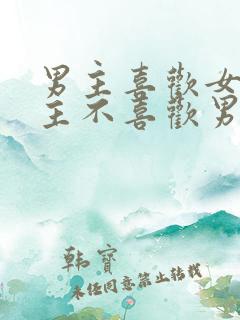 男主喜歡女
主不喜歡男
韩寶
未任同意禁止转载